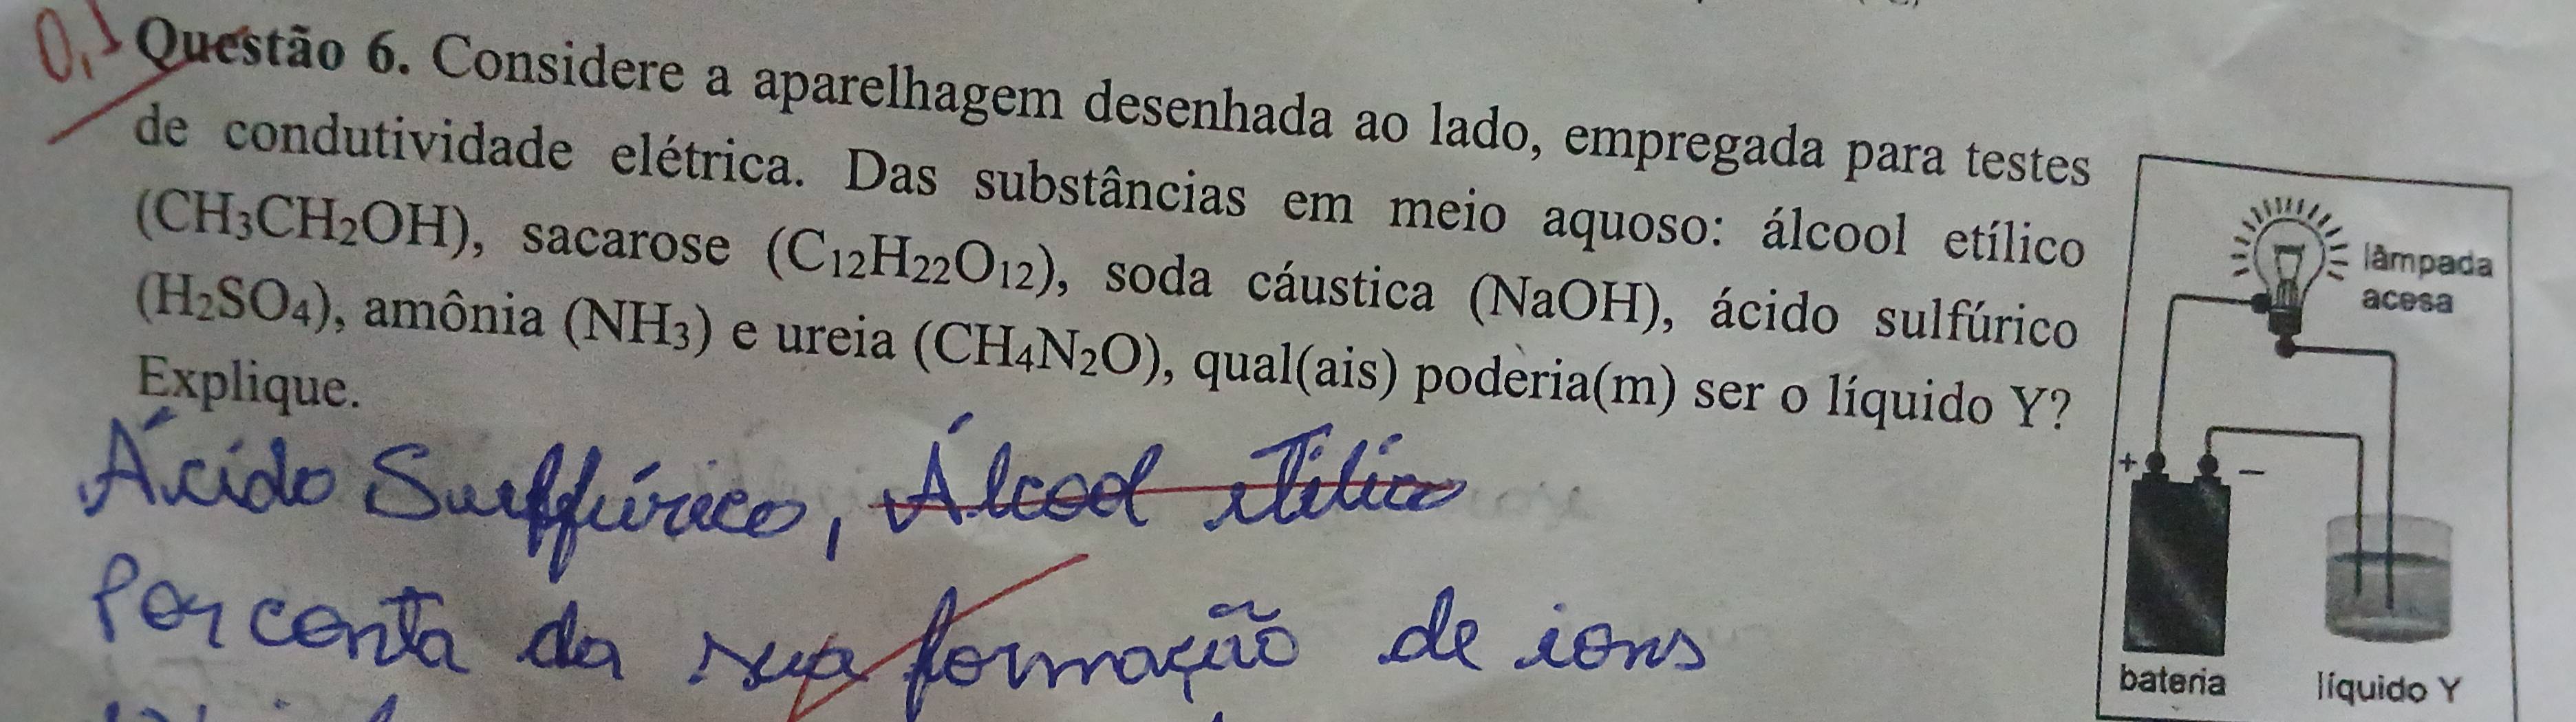 0,1
Questão 6. Considere a aparelhagem desenhada ao lado, empregada para testes
de condutividade elétrica. Das substâncias em meio aquoso: álcool etílico
(CH₃CH₂OH), sacarose (C₁₂H₂₂O₁₂), soda cáustica (NaOH), ácido sulfúrico
(H₂SO₄), amônia (NH₃) e ureia (CH₄N₂O), qual(ais) poderia(m) ser o líquido Y?
Explique.
lâmpada
acesa
+
−
bateria
líquido Y
Ácido Sulffúrico, Álcool etílico
Por conta da sua formação de ions